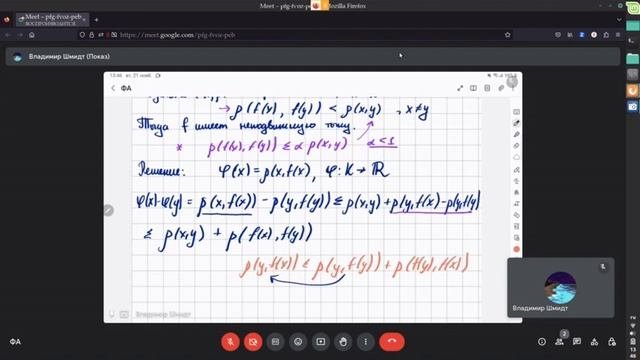 Meet – pfg-fvoz-peb Mozilla Firefox
Meet – pfg-fvoz-peb
ВОСПРОИЗВОДИТСЯ
https://meet.google.com/pfg-fvoz-peb
Владимир Шмидт (Показ)
13:46 вт. 21 нояб.
ФА
→ ρ(f(x), f(y)) < ρ(x,y) , x≠y
Тогда f имеет неподвижную точку.
* ρ(f(x), f(y)) ≤ α ρ(x,y) α < 1
Решение: φ(x) = ρ(x, f(x)), φ: K → ℝ
φ(x)-φ(y) = ρ(x, f(x)) - ρ(y, f(y)) ≤ ρ(x,y) + ρ(y, f(x)) - ρ(y, f(y))
≤ ρ(x,y) + ρ(f(x), f(y))
ρ(y, f(x)) ≤ ρ(y, f(y)) + ρ(f(y), f(x))
Владимир Шмидт
Владимир Шмидт
ФА
2